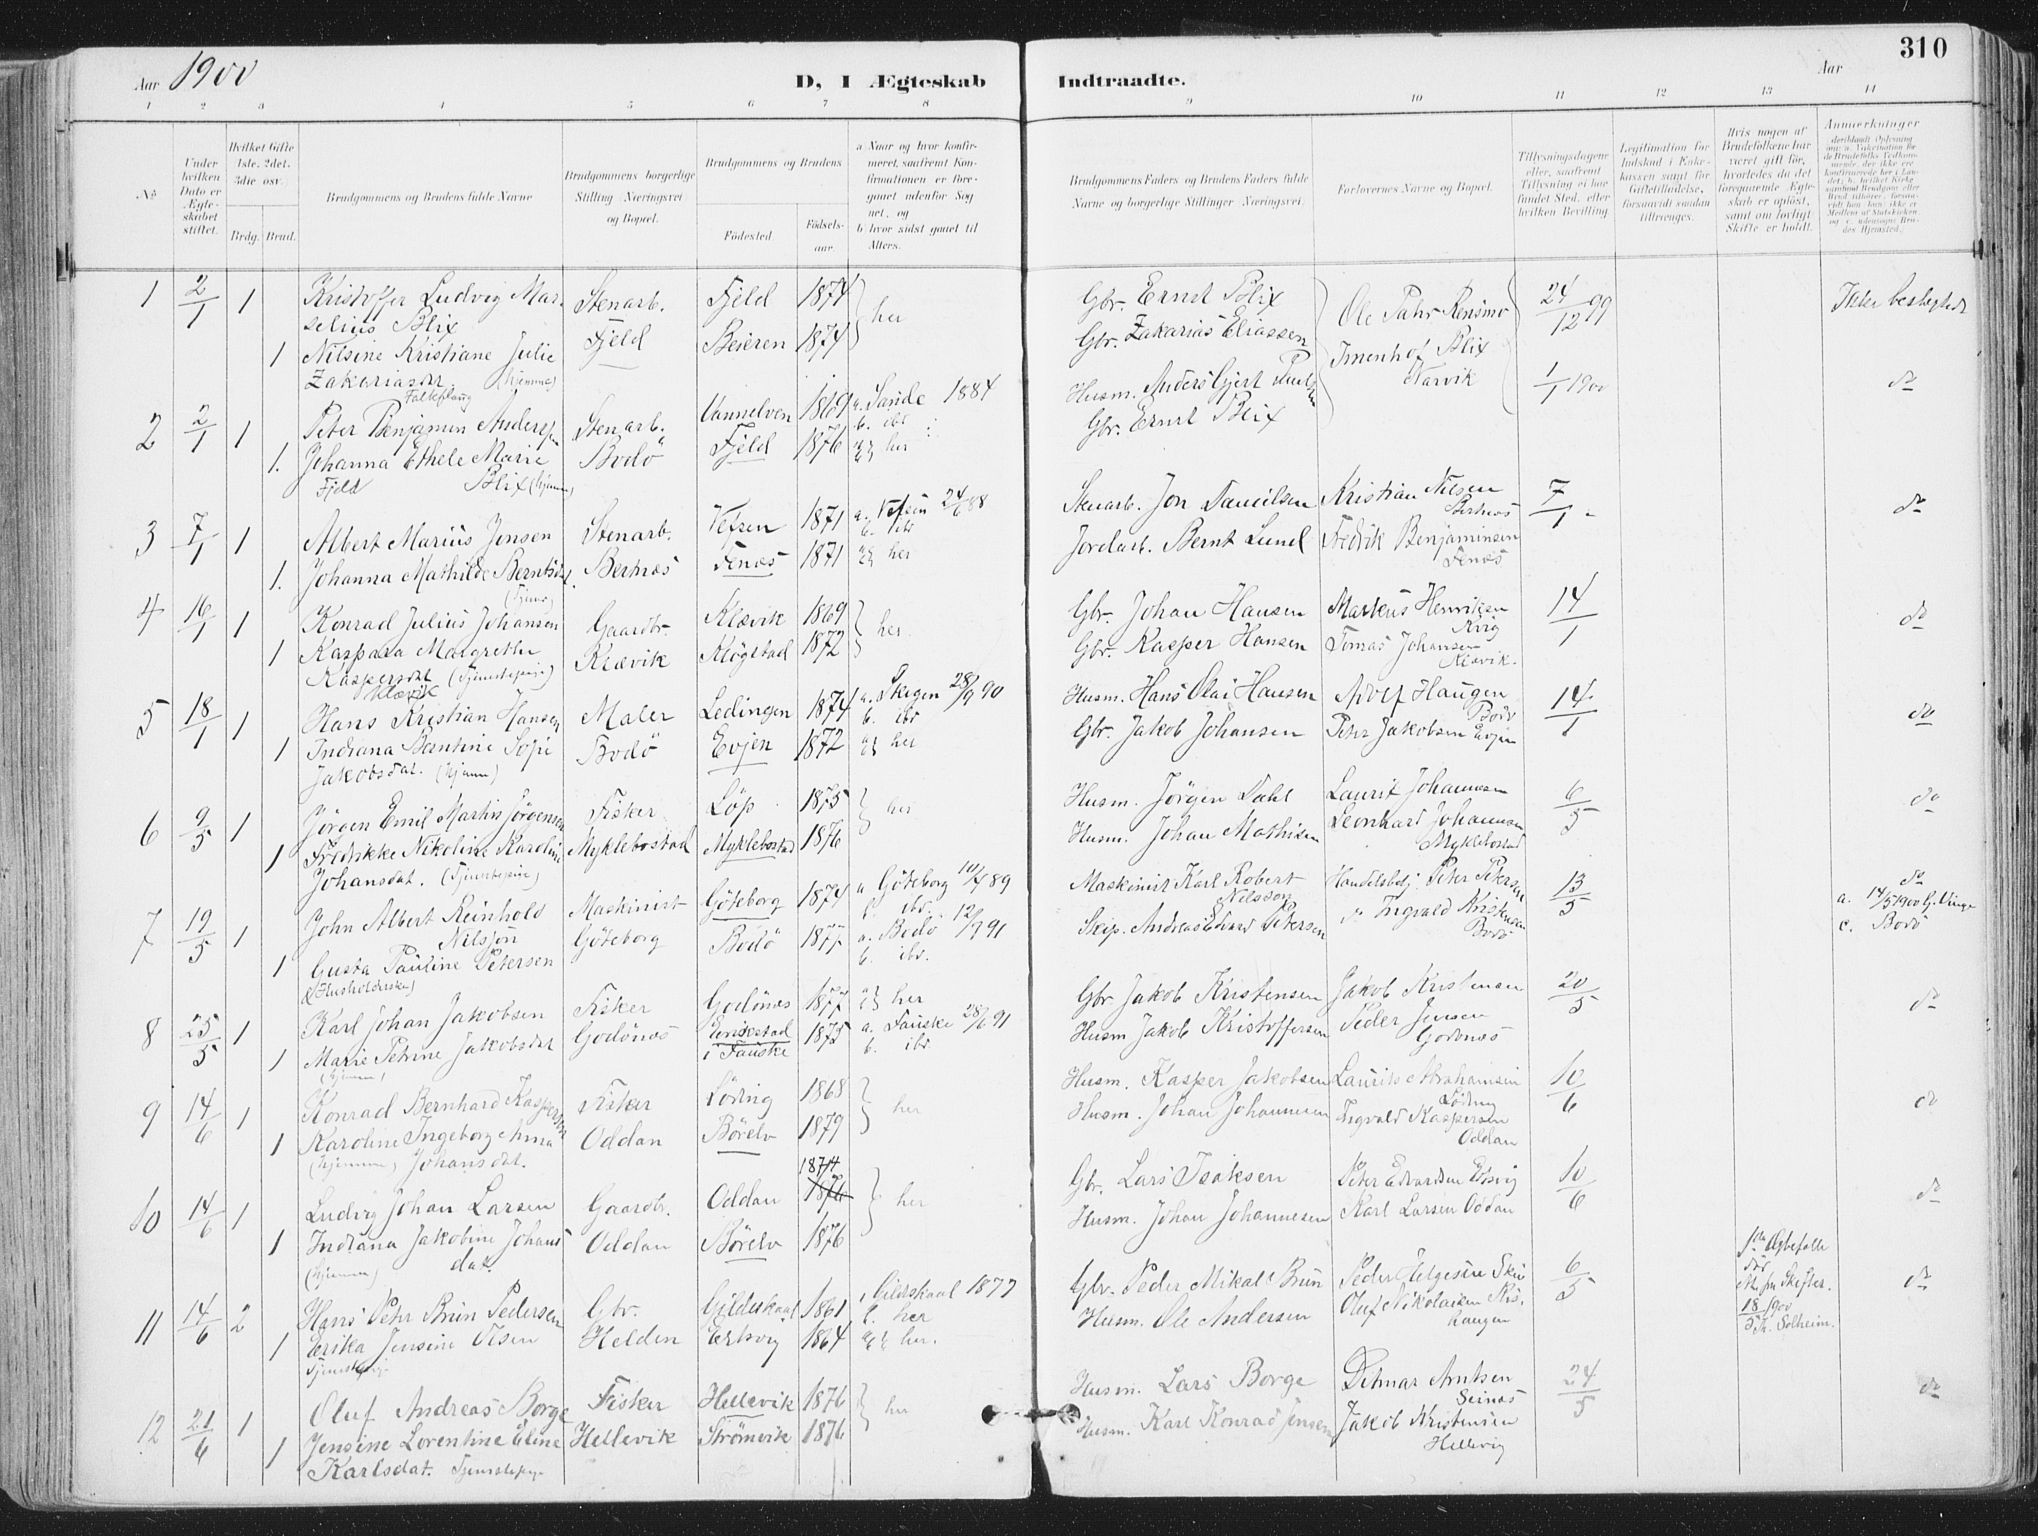 Aar 1900
D, I Ægteskab Indtraadte.
Aar
310
1 2 3 4 5 6 7 8 9 10 11 12 13 14
No
Under hvilken Dato er Ægteskabet stiftet.
Hvilket Gifte 1ste. 2det. 3die osv.
Brdg. Brud.
Brudgommens og Brudens fulde Navne
Brudgommens borgerlige Stilling Næringsvei og Bopæl.
Brudgommens og Brudens
Fødested
Fødsels-aar.
a Naar og hvor konfirmeret, saafremt Konfirmationen er foregaaet udenfor Sognet, og
b hvor sidst gaaet til Alters.
Brudgommens Faders og Brudens Faders fulde Navne og borgerlige Stillinger Næringsvei
Forlovernes Navne og Bopæl.
Tillysningsdagene eller, saafremt Tillysning ei har fundet Sted, efter hvilken Bevilling
Legitimation for Indskud i Enkekassen samt for Giftetilladelse, forsaavidt saadan tiltrænges.
Hvis nogen af Brudefolkene har været gift før, hvorledes da det foregaaende Ægteskab er opløst, samt om lovligt Skifte er holdt.
Anmærkninger
1 2/1 1 Kristoffer Ludvig Marselius Blix Stenarb. Fjeld Fjeld 1874 her Gbr. Ernst Blix Ole Pehr Rensmo 24/12 99 Ikke beslegtede
1 Nilsine Kristiane Julie Zakariasdt. (hjemme) Beieren 1874 Gbr. Zakarias Eliassen Imenhof Blix Narvik 1/1 1900
2 2/1 1 Peter Benjamin Andersen Stenarb. Bodö Vannelven 1869 a. Sande 1884 b. ibd Husm. Anders Gjert do
1. Johanna Ethele Marie Blix (hjemm) Fjeld Fjeld 1876 her Gbr. Ernst Blix
3 7/1 1 Albert Marius Jensen Stenarb. Bertnes Vefsen 1871 a. Vefsen 24/6 88 b. ibd Stenarb. Jon Danielsen Kristian Nilsen Bertnes 7/1 - do
1. Johanna Mathilde Berntsdt. Fenes 1871 her Jordarb. Bernt Lund Fredrik Benjaminsen Fenes
4 16/1 1 Konrad Julius Johansen Gaardbr. Klævik Klævik 1869 her Gbr. Johan Hansen Markus Henriksen Kvig 14/1 do
1 Kaspara Margrethe Kaspersdat (Tjenestepige) Klævik Klögstad 1872 Gbr. Kasper Hansen Tomas Johansen Klævik.
5 18/1 1 Hans Kristian Hansen Maler Bodö Lödingen 1874 a. Skogen 28/9 90 b. ibd Husm. Hans Olai Hansen Adolf Haugen Bodö 14/1 do
1 Indiana Bentine Sofie Jakobsdat. (hjemm) Evjen 1872 her Gbr. Jakob Johansen Peter Jakobsen Evjen
6 9/5 1 Jörgen Emil Martin Jörgensen Fisker Myklebostad Löp 1875 her Husm. Jörgen Dahl Laurit Johannesen 6/5 do
1 Fredrikke Nikoline Karoline Johansdat. (Tjenestepige) Myklebostad 1876 Husm. Johan Mathisen Leonhard Johannesen Myklebostad
7 19/5 1 John Albert Reinhold Nilsson Maskinist Göteborg Göteborg 1874 a Göteborg 10/4 89 b. ibd. Maskinist Karl Robert Nilsson Handelsbetj Peter Petersen 13/5 do
1 Gusta Pauline Petersen (Husholderske) Bodö 1877 a. Bodö 12/7 91 b. ibd. Skip. Andreas Edvard Petersen Ingvald Kristensen Bodö a. 14/5 1900 c. Bodö
8 25/5 1 Karl Johan Jakobsen Fisker Godönes Godönes 1877 her Gbr Jakob Kristensen Jakob Kristensen 20/5 do
1 Marie Petrine Jakobsdat (hjemm) i Fauske 1875 a. Fauske 28/6 91 b. ibd Husm Jakob Kristoffersen Peder Jensen Godönes
9 14/6 1 Konrad Bernhard Kaspersen Fisker Oddan Löding 1868 her Husm. Kasper Jakobsen Laurits Abrahamsen Löding 10/6 do
1 Karoline Ingeborg Anna Johansdat. (hjemme) Börelv 1879 Husm. Johan Johannesen Ingvald Kaspersen Oddan
10 14/6 1 Ludvig Johan Larsen Gaardbr. Oddan Oddan 1874 1876 her Gbr. Lars Isaksen Peter Edvardsen 10/6 do
1 Indiana Jakobine Johansdat. (hjemme) Börelv 1876 Husm. Johan Johannesen Karl Larsen Oddan
11 14/6 2 Hans Peter Brun Pedersen Gbr. Helden Gildeskaal 1861 Gildskaal 1877 b. her Gbr. Peder Mikal Brun Peder Helgesen 6/5 do
1 Erika Jensine Olsen Tjenestepig. Ertsvig 1864 her. Husm. Ole Andersen Oluf Nikolaisen 18/5 1900 Solheim.
12 21/6 1 Oluf Andreas Borge Fisker Hellevik Hellevik 1876 her Husm. Lars Borge Ditmar Arntsen Seines 24/5 do
1 Jensine Lorentine Eline Karlsdat. Tjenestepige Strömvik 1876 Husm. Karl Konrad Jensen Jakob Kristensen Hellevig